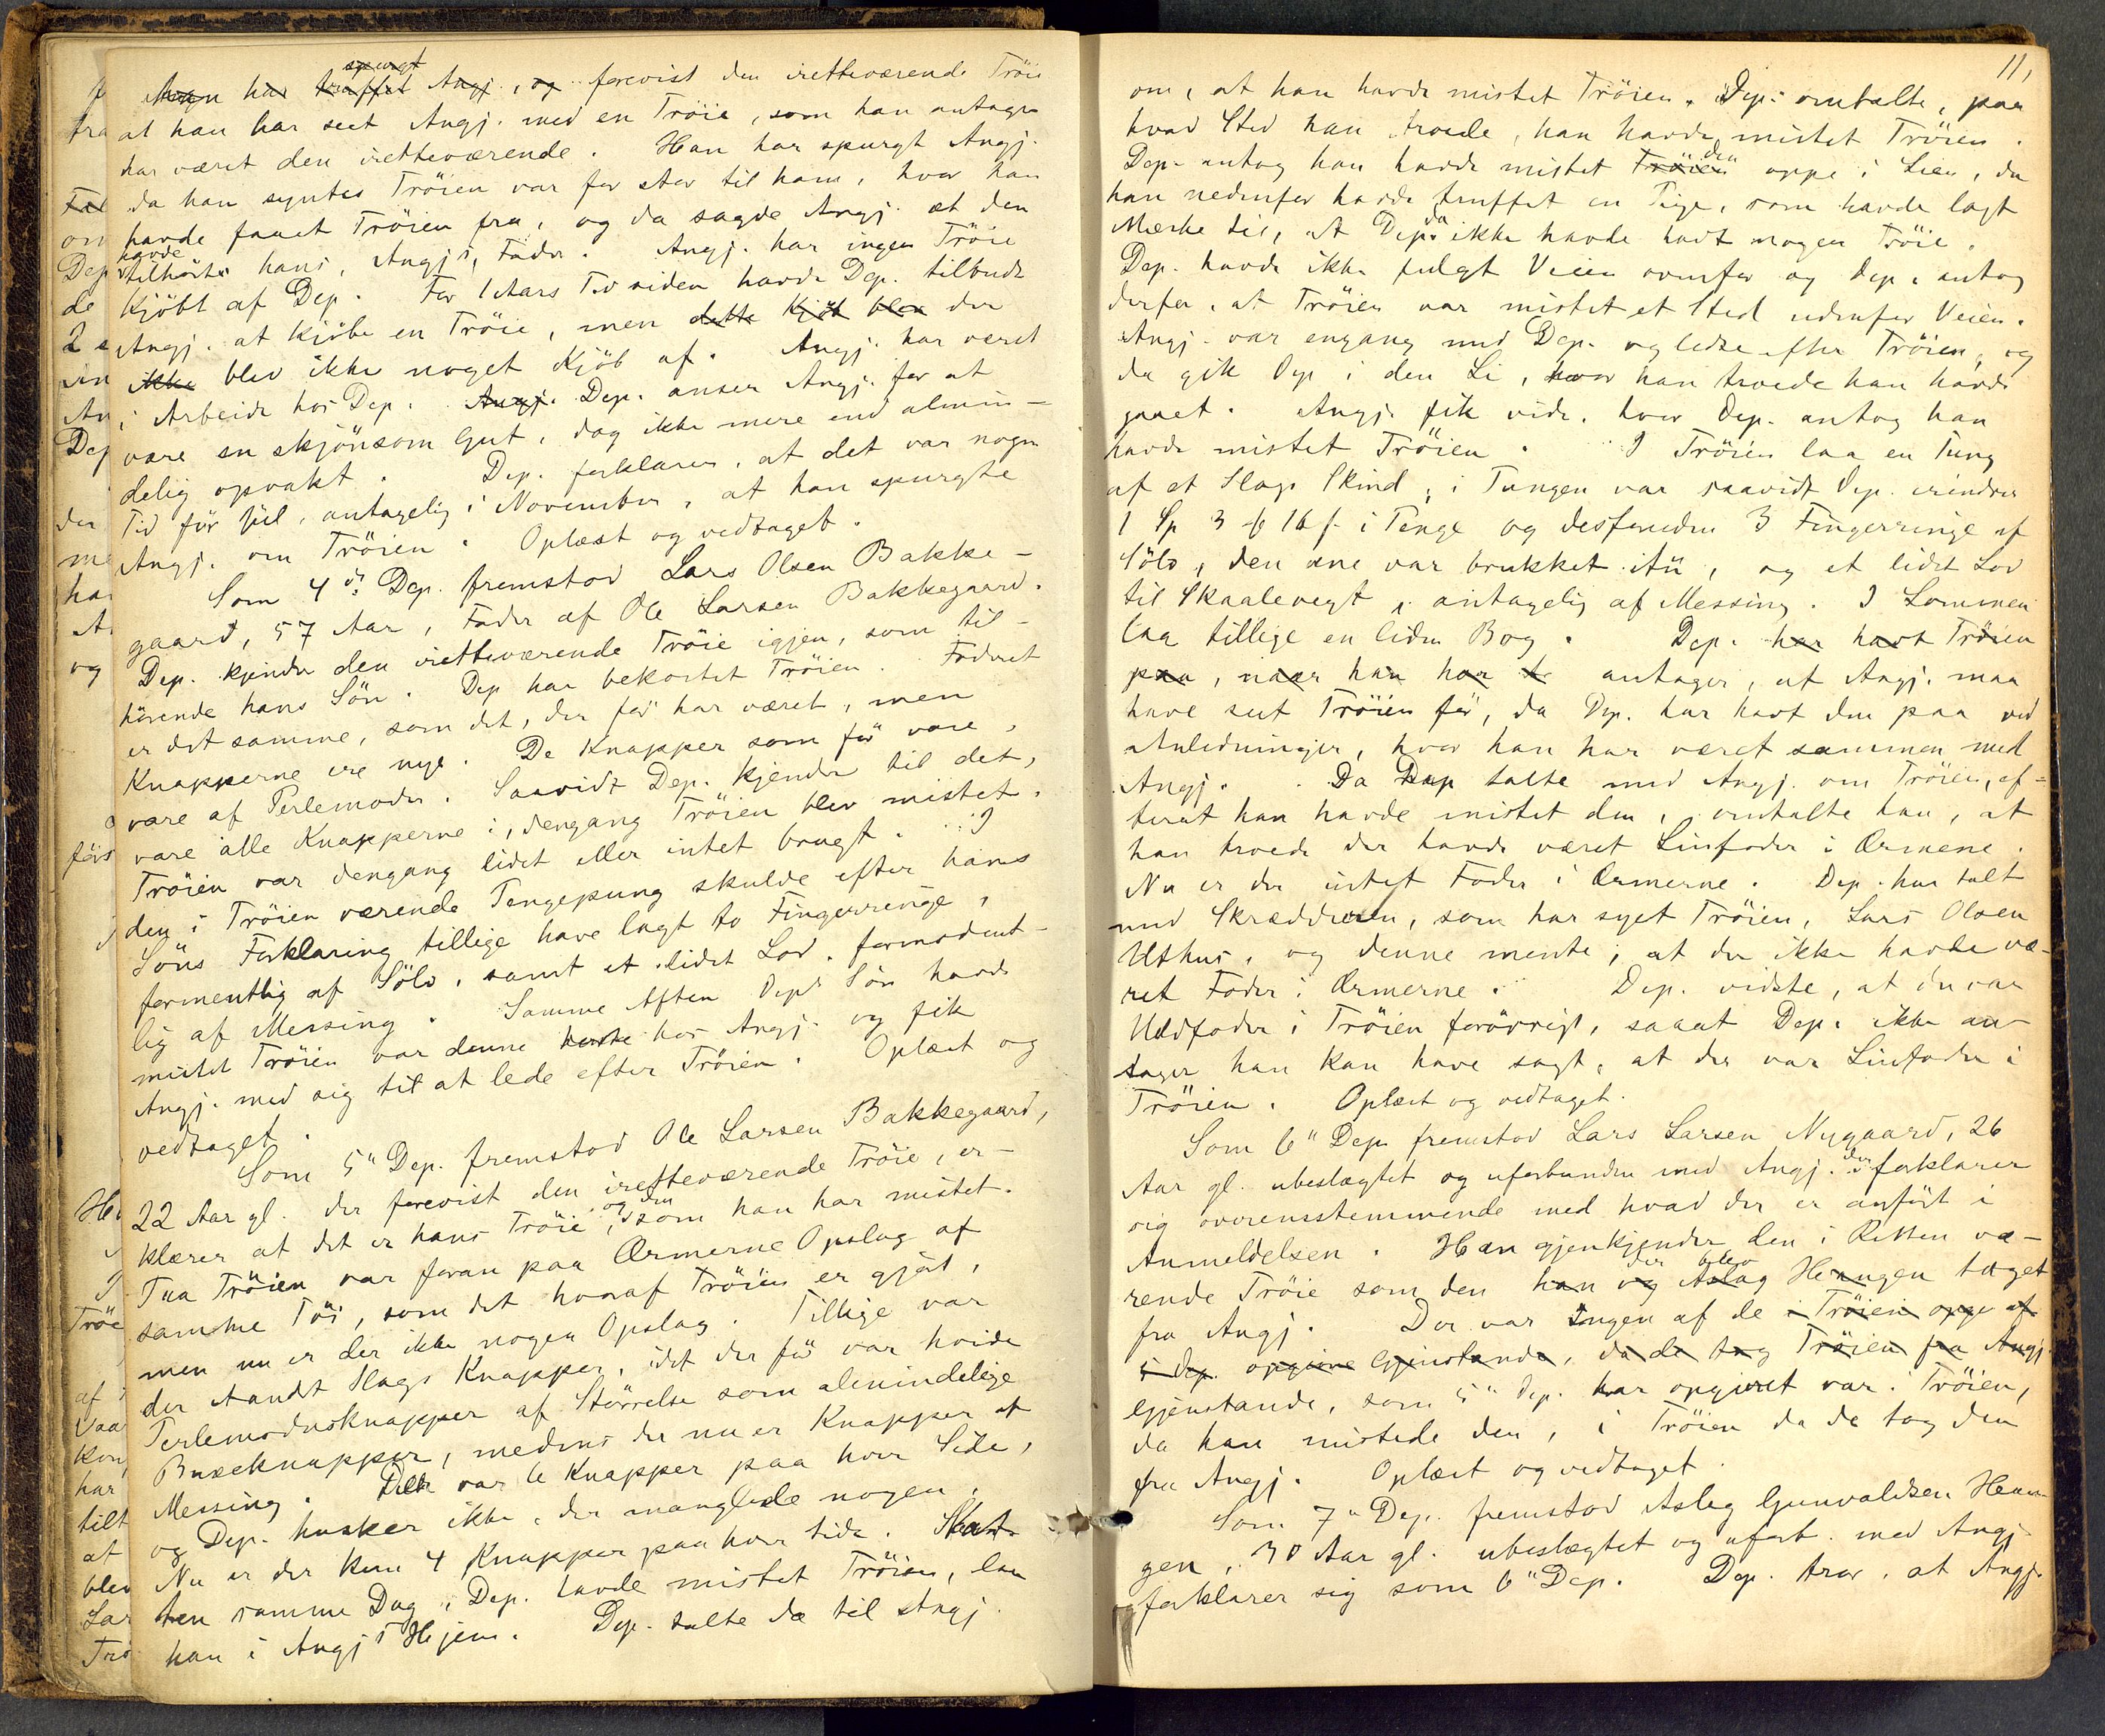 spurgt
han har truffet Angj., og forevist den iretteværende Tröie
at han har seet Angj. med en Tröie, som han antager
har været den iretteværende. Han har spurgt Angj.
da han syntes Tröien var for stor til ham, hvor han
havde faaet Tröien fra, og da sagde Angj. at den
havde
tilhörte hans, Angjs, Fader. Angj. har ingen Tröie
kjöbt af Dep. For 1 Aars Tid siden havde Dep. tilbudt
Angj. at kjöbe en Tröie, men dette Kjöb blev der
ikke blev ikke noget Kjöb af. Angj. har været
i Arbeide hos Dep. Angj. Dep. anser Angj. for at
være en skjönsom Gut, dog ikke mere end almin-
delig opvakt. Dep. forklarer, at det var nogen
Tid för Jul, antagelig i November, at han spurgte
Angj. om Tröien. Oplæst og vedtaget.
Som 4de Dep. fremstod Lars Olsen Bakke-
gaard, 57 Aar, Fader af Ole Larsen Bakkegaard.
Dep. kjender den iretteværende Tröie igjen, som til-
hörende hans Sön. Dep har bekostet Tröien. Foderet
er det samme, som det, der för har været, men
Knapperne ere nye. De Knapper som för vare,
vare af Perlemoder. Saavidt Dep. kjender til det,
vare alle Knapperne i, dengang Tröien blev mistet.
Tröien var dengang lidet eller intet brugt. I
den i Tröien værende Pengepung skulde efter hans
Söns Forklaring tillige have lagt to Fingerringe,
formentlig af Sölv, samt et lidet Lod, formodent-
lig af Messing. Samme Aften Deps Sön havde
mistet Tröien var denne hos Angj. og fik
Angj. med sig til at lede efter Tröien. Oplæst og
vedtaget.
Som 5" Dep. fremstod Ole Larsen Bakkegaard,
22 Aar gl. der forevist den iretteværende Tröie, er-
og den
klærer at det er hans Tröie, som han har mistet.
Paa Tröien var foran paa Ærmerne Opslag af
samme Töi, som det hvoraf Tröien er gjort,
men nu er der ikke nogen Opslag. Tillige var
der Aandt Slags Knapper, idet der för var hvide
Perlemodersknapper af Störrelse som almindelige
Buxeknapper, medens der nu er Knapper af
Messing. Der var 6 Knapper paa hver Side,
og Dep. husker ikke, der manglede nogen.
Nu er der kun 4 Knapper paa hver side.
samme Dag, Dep. havde mistet Tröien, laa
han i Angjs Hjem. Dep. talte da til Angj.
11,
om, at han havde mistet Tröien. Dep. omtalte, paa
hvad Sted han troede, han havde mistet Tröien.
den
Dep. antog han havde mistet Tröien oppe i Lien, da
han nedenfor havde truffet en Pige, som havde lagt
Mærke til, at Dep. da ikke havde havt nogen Tröie.
Dep. havde ikke fulgt Veien ovenfor og Dep. antog
derfor, at Tröien var mistet et Sted udenfor Veien.
Angj. var engang med Dep. og ledte efter Tröien, og
da gik Dep i den Li, hvor han troede han havde
gaaet. Angj. fik vide, hvor Dep. antog han
havde mistet Tröien. I Tröien laa en Pung
af et Slags Skind, i Pungen var saavidt Dep. erindrer
1 Sp 3 ß 16 f. i Penge og desforuden 3 Fingerringe af
Sölv, den ene var brukket itu, og et lidet Lod
til Skaalevegt, antagelig af Messing. I Lommen
laa tillige en liden Bog. Dep. har havt Tröien
paa, naar han har antager, at Angj. maa
have seet Tröien för, da Dep. har havt den paa ved
Anledninger, hvor han har været sammen med
Angj. Da Dep talte med Angj. om Tröien, ef-
terat han havde mistet den, omtalte han, at
han troede der havde været Linfoder i Ærmene.
Nu er der intet Foder i Ærmerne. Dep. har talt
med Skrædderen, som har syet Tröien, Lars Olsen
Uthus, og denne mente, at der ikke havde væ-
ret Foder i Ærmerne. Dep. vidste, at der var
Uldfoder i Tröien forövrigt, saaat Dep. ikke an-
tager han kan have sagt, at der var Linfoder i
Tröien. Oplæst og vedtaget.
Som 6" Dep. fremstod Lars Larsen Nygaard, 26
Aar gl. ubeslægtet og uforbunden med Angj. der forklarer
sig overensstemmende med hvad der er anfört i
Anmeldelsen. Han gjenkjender den i Retten væ-
der blev
rende Tröie som den han og Aslag Heungen taget
fra Angj. Der var Ingen af de i Tröien opge af
5 Dep. opgivne Gjenstande, da de tog Tröien fra Angj.
Gjenstande, som 5" Dep. har opgivet var i Tröien,
da han mistede den, i Tröien da de tog den
fra Angj. Oplæst og vedtaget.
Som 7" Dep. fremstod Aslag Gunvaldsen Heun-
gen, 30 Aar gl. ubeslægtet og uforb. med Angj.
forklarer sig som 6" Dep. Dep. tror, at Angj.